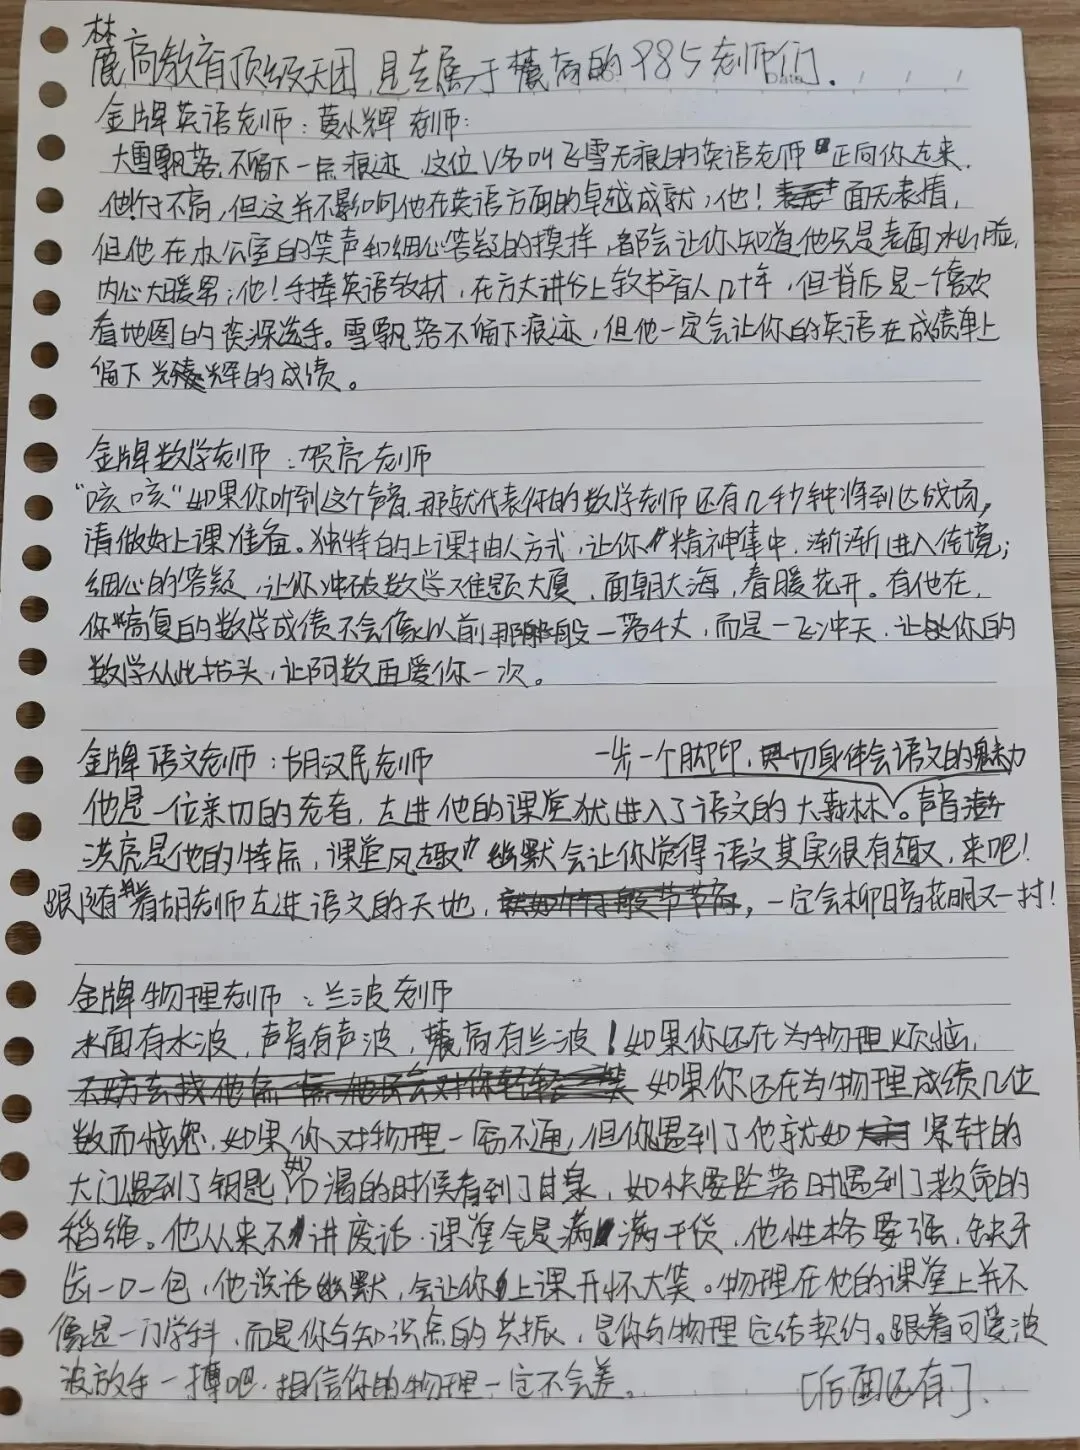 麓高教育顶级天团,是专属于麓高的985老师们.
Date
金牌英语老师:黄小辉老师:
大雪飘落,不留下一点痕迹,这位V名叫飞雪无痕的英语老师正向你走来.
他个不高,但这并不影响他在英语方面的卓越成就;他!面无表情,
但他在办公室的笑声和细心答疑的摸样,都会让你知道他只是表面冰山脸,
内心大暖男;他!手捧英语教材,在方大讲台上教书育人几十年,但背后是一个喜欢
看地图的资深选手。雪飘落不留下痕迹,但他一定会让你的英语在成绩单上
留下光辉的成绩。
金牌数学老师:贺亮老师
“咳咳”如果你听到这个声音,那就代表你的数学老师还有几千秒钟将到达战场,
请做好上课准备。独特的上课抽人方式,让你精神集中,渐渐进入佳境;
细心的答疑,让你冲破数学难题大厦,面朝大海,春暖花开。有他在,
你高复的数学成绩不会像以前那般一落千丈,而是一飞冲天,让你的
数学从此抬头,让阿数再爱你一次。
金牌语文老师:胡汉民老师 一步一个脚印,切身体会语文的魅力
他是一位亲切的老者,走进他的课堂犹进入了语文的大森林。声音
洪亮是他的特点,课堂风趣幽默会让你觉得语文其实很有趣,来吧!
跟随着胡老师走进语文的天地,一定会柳暗花明又一村!
金牌物理老师:兰波老师
水面有水波,声音有声波,麓高有兰波!如果你还在为物理烦恼,
如果你还在为物理成绩几位
数而恼怒,如果你对物理一窍不通,但你遇到了他就如紧转的
大门遇到了钥匙,如口渴的时候看到了甘泉,如快要坠落时遇到了救命的
稻维。他从来不讲废话,课堂全是满满干货,他性格要强,缺牙
齿一口一包,他说话幽默,会让你上课开怀大笑。物理在他的课堂上并不
像是一门学科,而是你与知识点的共振,是你与物理定结契约。跟着可爱波
波放手一搏吧,相信你的物理一定不会差。 [后面还有].